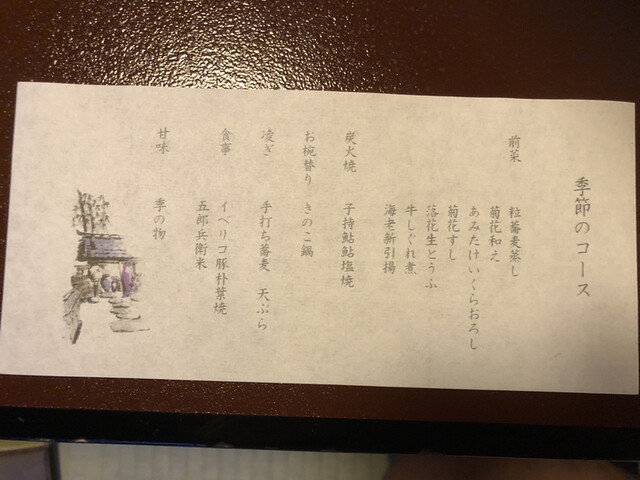 季節のコース
前菜
粒蕎麦蒸し
菊花和え
あみたけいくらおろし
菊花すし
落花生とうふ
牛しぐれ煮
海老新引揚
炭火焼 子持鮎鮎塩焼
お椀替り きのこ鍋
凌ぎ 手打ち蕎麦 天ぷら
食事 イベリコ豚朴葉焼
五郎兵衛米
甘味 季の物